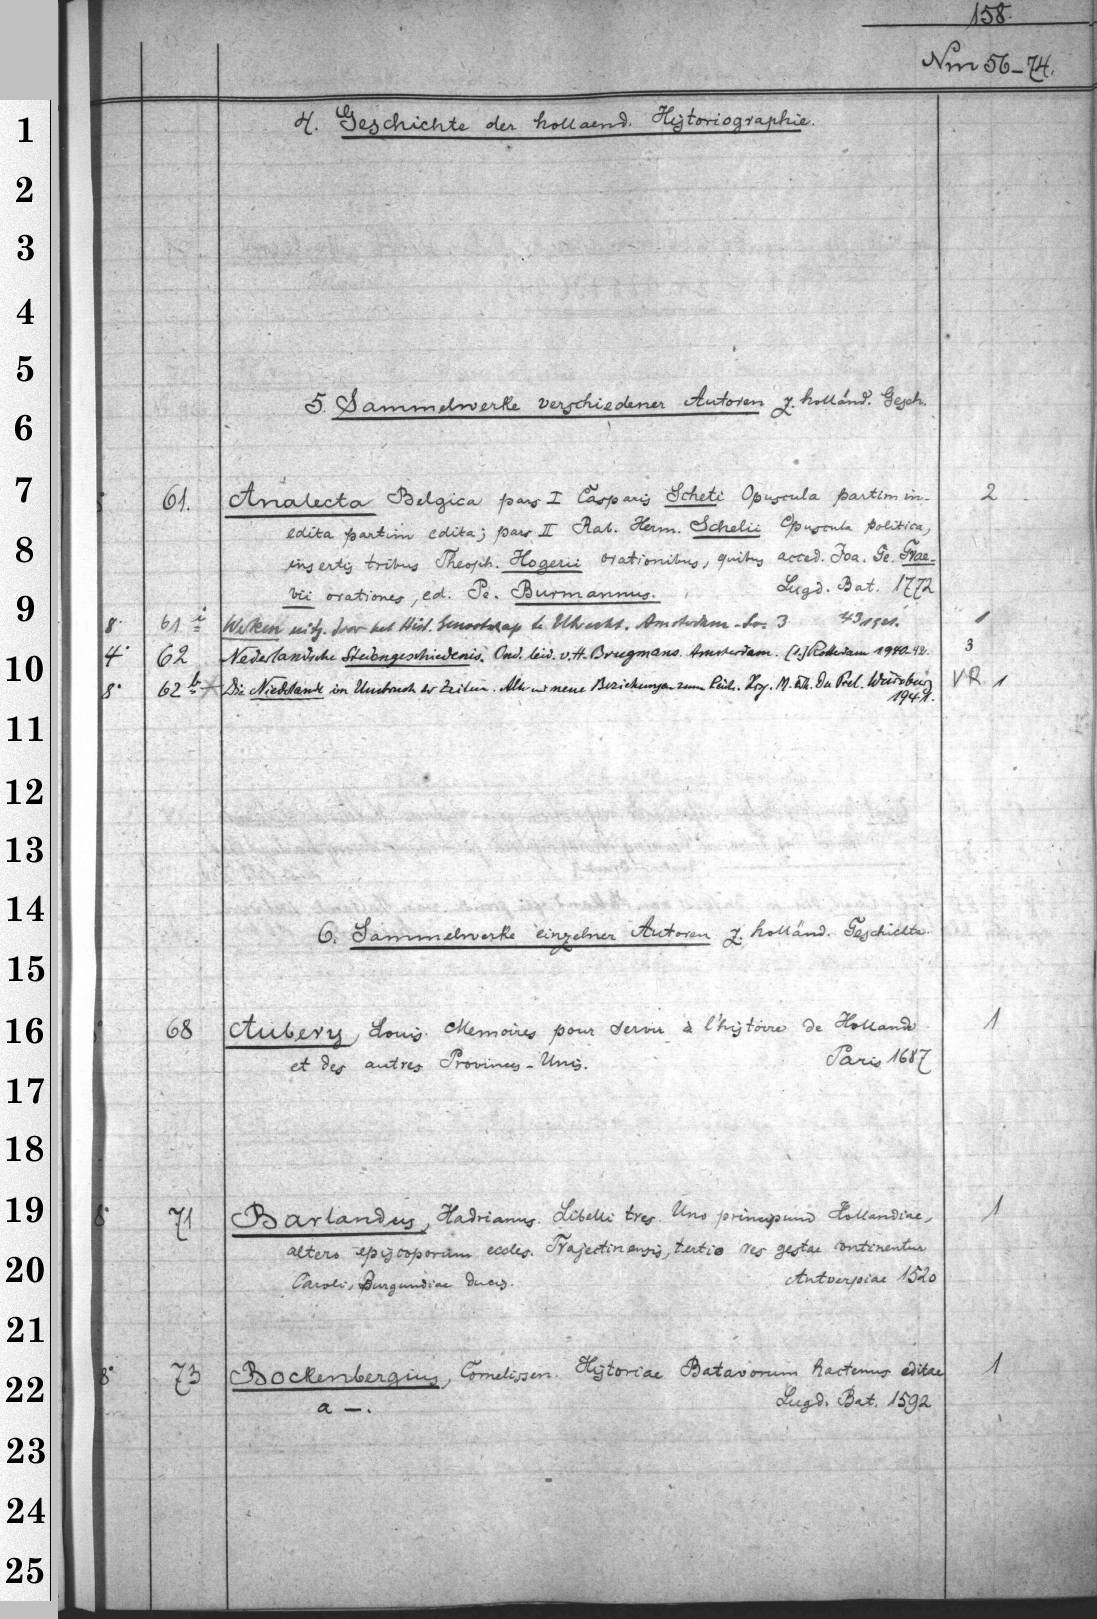 158.
Nm 56-74.
1
4. Geschichte der hollaend. Historiographie.
2
3
4
5
5. Sammelwerke verschiedener Autoren z. holländ. Gesch.
6
7
61. Analecta Belgica pars I Casparis Scheti Opuscula partim in- 2
edita partim edita; pars II Rab. Herm. Schelii Opuscula politica,
8
insertis tribus Theoph. Hogerii orationibus, quibus acced. Joa. Ge. Grae-
vii orationes, ed. Pe. Burmannus. Lugd. Bat. 1772
9
8° 61 i Werken uitg. door het Hist. Genootschap te Utrecht. Amsterdam 1
10
4° 62 Nederlandsche Stedengeschiedenis. Ond. leid. v. H. Brugmans. Amsterdam. Rotterdam 1940-42. 3
8° 62 b Die Niederlande im Umbruch der Zeiten. Alte und neue Beziehungen zum Reich. Hrg. M. Frh. Du Prel. Würzburg VR 1
1941.
11
12
13
14
6. Sammelwerke einzelner Autoren z. holländ. Geschichte
15
16
68 Aubery, Louis Memoires pour servir à l'histoire de Hollande 1
et des autres Provinces-Unis. Paris 1687
17
18
19
8° 71 Barlandus, Hadrianus. Libelli tres. Uno principum Hollandiae, 1
altero episcoporum eccles. Trajectinensis, tertio res gestae continentur
20
Caroli, Burgundiae ducis. Antverpiae 1520
21
8° 73 Bockenbergius, Cornelissen. Historiae Batavorum hactenus editae 1
22
a —. Lugd. Bat. 1592
23
24
25